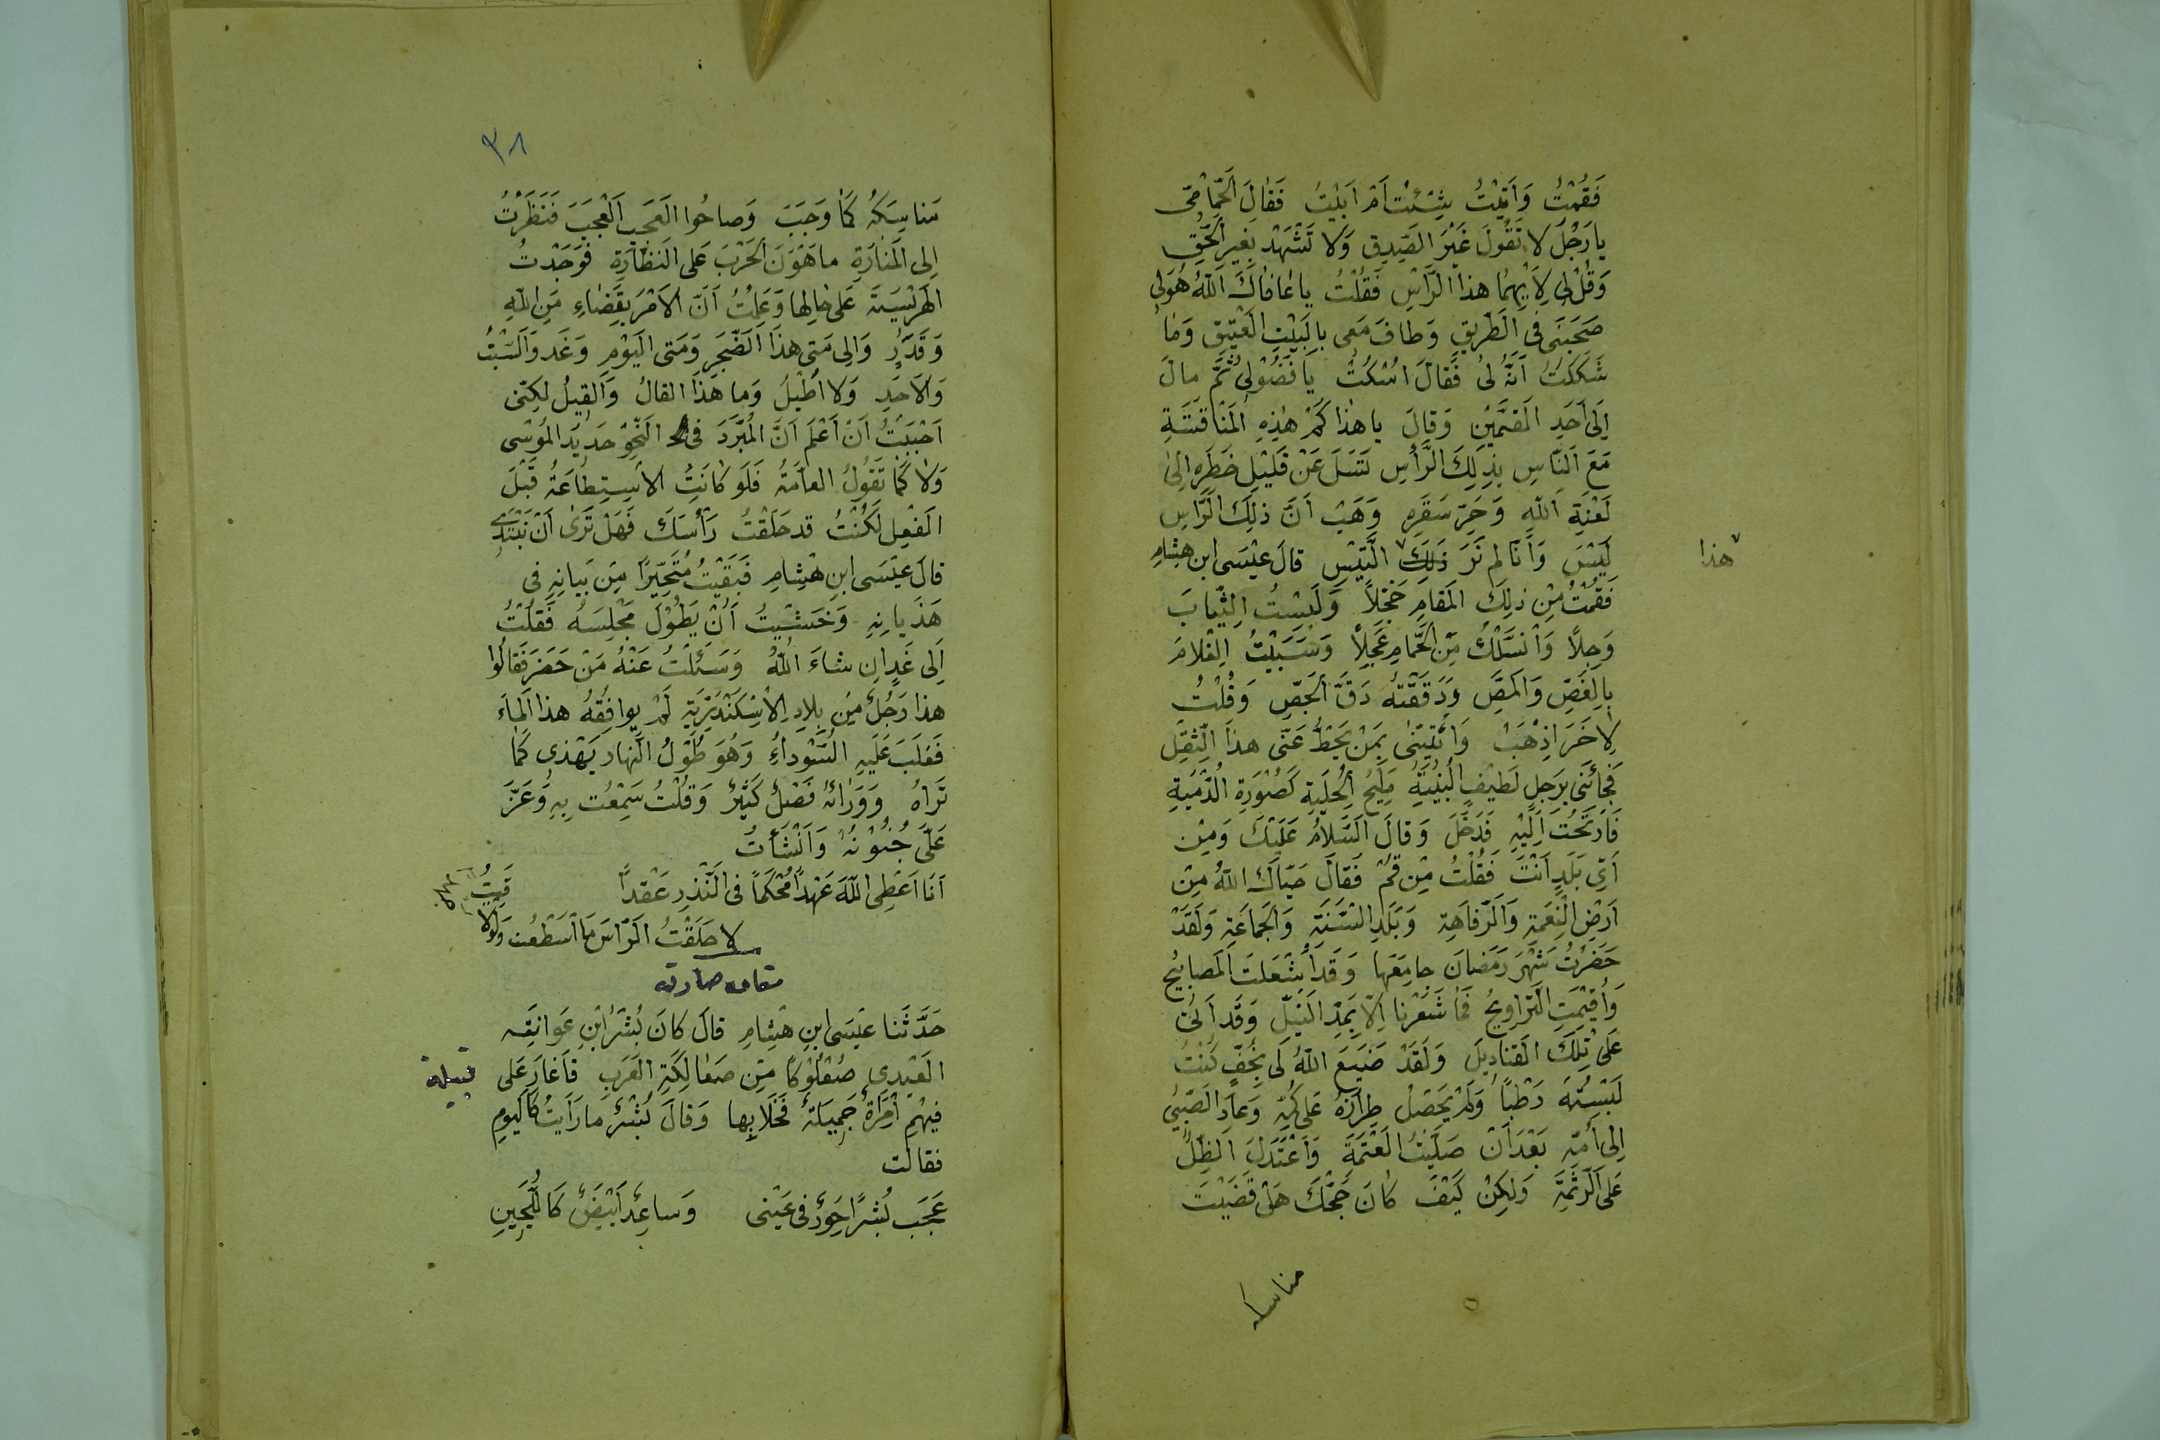 فَقُمْتُ وَاَتَيْتُ شِئْتُ اَمْ اَبَيْتُ فَقالَ الحَمّامِيّ
يا رَجُلُ لا تَقُولُ غَيْرَ الصِّدِقِ وَلا تَشْهَدْ بِغَيرِ الحَّقِ
وَقُلْ لى لِاَيِّهِمٰا هذا الرَّاسِ فَقُلْتُ يا عٰافاكَ اللّٰهُ هُوَ لى
صَحَبَنى فِى الطَرِيقِ وَطافَ مَعى بِالبَيْتِ العَتيقِ وَمٰا
شَكَكْتُ اَنَّهُ لى فَقالَ اسْكُتْ يا فَضُوْلىُّ ثمَّ مالَ
اِلَى اَحَدِ الخَصْمَيْنِ وَقالَ يا هٰذا كَمْ هٰذِهِ المُنافَسَةِ
مَعَ النّاسِ بِذلِكَ الرَّأْسِ تَسَلَ عَنْ قَليْلِ خَطَرِهِ اِلىٰ
لَعْنَةِ اللّٰهِ وَحَرِّ سَقَرِهِ وَهَبْ اَنَّ ذلِكَ الرَّاسِ
لَيْسَ وَاَنا لَم نَرَ ذَلِكَ التَّيْسِ قالَ عيْسَى ابن هشام
هذا
فَقُمْتُ مِنْ ذلِكَ المَقامِ خَجِلاً وَلَبِسْتُ الثِّيابَ
وَجِلاً وَاْنسَلَلْتُ مِنَ الحَّمامِ عَجِلاً وَسَبَبْتُ الغُلامَ
بِالعَضّ وَالمَصِّ وَدَقَقْتُهُ دَقَّ الجَصِّ وَقُلْتُ
لِاٰخَرَ اذْهَبْ وَأْتِنى بِمَنْ يَحُطُّ عَنّى هذَا الثِقْلِ
فَجٰائَنى بِرَجُلٍ لَطيْفِ البِنْيَةِ مَليْحِ الْحِلْيَةِ كَصُوْرَةِ الدُّمْيَةِ
فَارتَحْتُ اِلَيْهِ فَدَخَلَ وَقالَ السَّلامُ عَلَيْكَ وَمِنْ
اَىِّ بَلَدٍ اَنْتَ فَقُلْتُ مِنْ قُمْ فَقالَ حَيّاكَ اللّٰهُ مِنْ
اَرْضِ النِعْمَةِ وَالرَّفاهَةِ وَبَلَدِ السُنَّةِ وَالجَماعَةِ وَلَقَدْ
حَضَرْتُ شَهْرَ رَمَضانَ جامِعَها وَقَد اُشْعِلَتِ المَصابيْح
وَاُقيْمَتِ التَّراويحُ فَمٰا شَعَرْنا اِلّا بِمَدِّ النَيْل وَقَد اَتىٰ
عَلى تِلْكَ القَناديلَ وَلَقَدْ صَنَعَ اللّٰهُ لى بِخُفّ كُنْتُ
لَبِسْتُهُ رَطْباً وَلَمْ يَحْصُلْ طِرازُهُ عَلى كُمِّهِ وَعادَ الصَّبِىُّ
اِلى اُمّهِ بَعْدَ اَنْ صَلَّيْتُ العَتَمَةَ وَاعْتَدَلَ الظِلُّ
عَلَى الرَثْمَةِ وَلكِنْ كَيْفَ كٰانَ حَجُّكَ هَلْ قَضَيْتَ
مناسكه
٣٨
مَناسِكَهُ كَمٰا وَجَبَ وَصاحُوا العَجَب العَجَبَ فَنَظَرْتُ
اِلى المَنارَةِ ما هَوَّنَ الحَرْبَ عَلى النَظّارَةِ فَوَجَدْتُ
الهَريْسَةَ عَلى حٰالِها وَعَلِمْتُ اَنَّ الاَمْرَ بِقَضٰاءِ مِن اللّٰهِ
وَقَدَرٍ وَاِلى مَتى هذَا الضَّجَرِ وَمَتى اليَوْمِ وَغَد وَالسَّبْتُ
وَالاَحَدِ وَلا اُطيْلُ وَما هذَا القالُ وَالقيلُ لكِنّى
اَحْبَبْتُ اَنْ اَعْلَم اَنَّ المُبَرّدَ فى النَّحْوِ حَديدَ المُوْسٰى
وَلا كَمٰا تَقُولُ العامَّهُ فَلَو كٰانَتِ الاسْتِطاعَةُ قَبْلَ
الفِعْلِ لَكُنْتُ قد حَلَقْتُ رَأْسَكَ فَهَلْ تَرىٰ اَنْ نَبْتَدِى
قالَ عيْسَى ابنِ هِشامٍ فَبَقيْتُ مُتَحَيِّراً مِن بَيانِهِ فى
هَذَيانِهِ وَخَشيْتُ اَنْ يَطُوْلَ مَجْلِسَهُ فَقُلْتُ
اِلى غَدٍ اِن شاءَ اللّٰهُ وَسَئَلْتُ عَنْهُ مَنْ حَضَرَ فَقالُوا
هذا رَجُلٌ مِنْ بِلادِ الاِسْكَنْدَرِيَّةِ لَمْ يوافِقْهُ هذا الماءَ
فَغَلَبَ عَلَيهِ السَّوْداءُ وَهُوَ طُوْلُ النَّهارِ يَهْذى كَمٰا
تَراهُ وَوَرائَهُ فَضْلٌ كَثيْرٌ وَقُلْتُ سَمِعْت بِهِ وَعَزَّ
عَلَىَّ جُنُوْنُهُ وَاَنْشَأْتُ
اَنَا اَعْطِى اللّٰهَ عَهْداً مُحْكَماً فى النَّذْرِ عَقْداً
لا حَلَقْتُ الرَّأْسَ مَا اَسْطَعْت وَلَوْ لا
قَيتُ
مقامه صادقه
حَدَّثَنا عيْسَى ابنِ هِشامٍ قالَ كانَ بُشْرُ ابْنِ عَوانَةِ
العَبْدى صُعْلُوْكاً مِن صَعٰالِكَةِ العَرَبِ فَاَغارَ عَلى
قبيلة
فيْهِمِ امْرَأةٌ جَميلَةٌ فَخَلا بِها وَقالَ بُشْرٌ ما رَاَيتُ كَاليَومِ
فقالت
عَجَب بُشْرًا حَوَرٌ فى عَيْنى وَساعِدٌ اَبْيَضٌ كَاللُّجَينِ